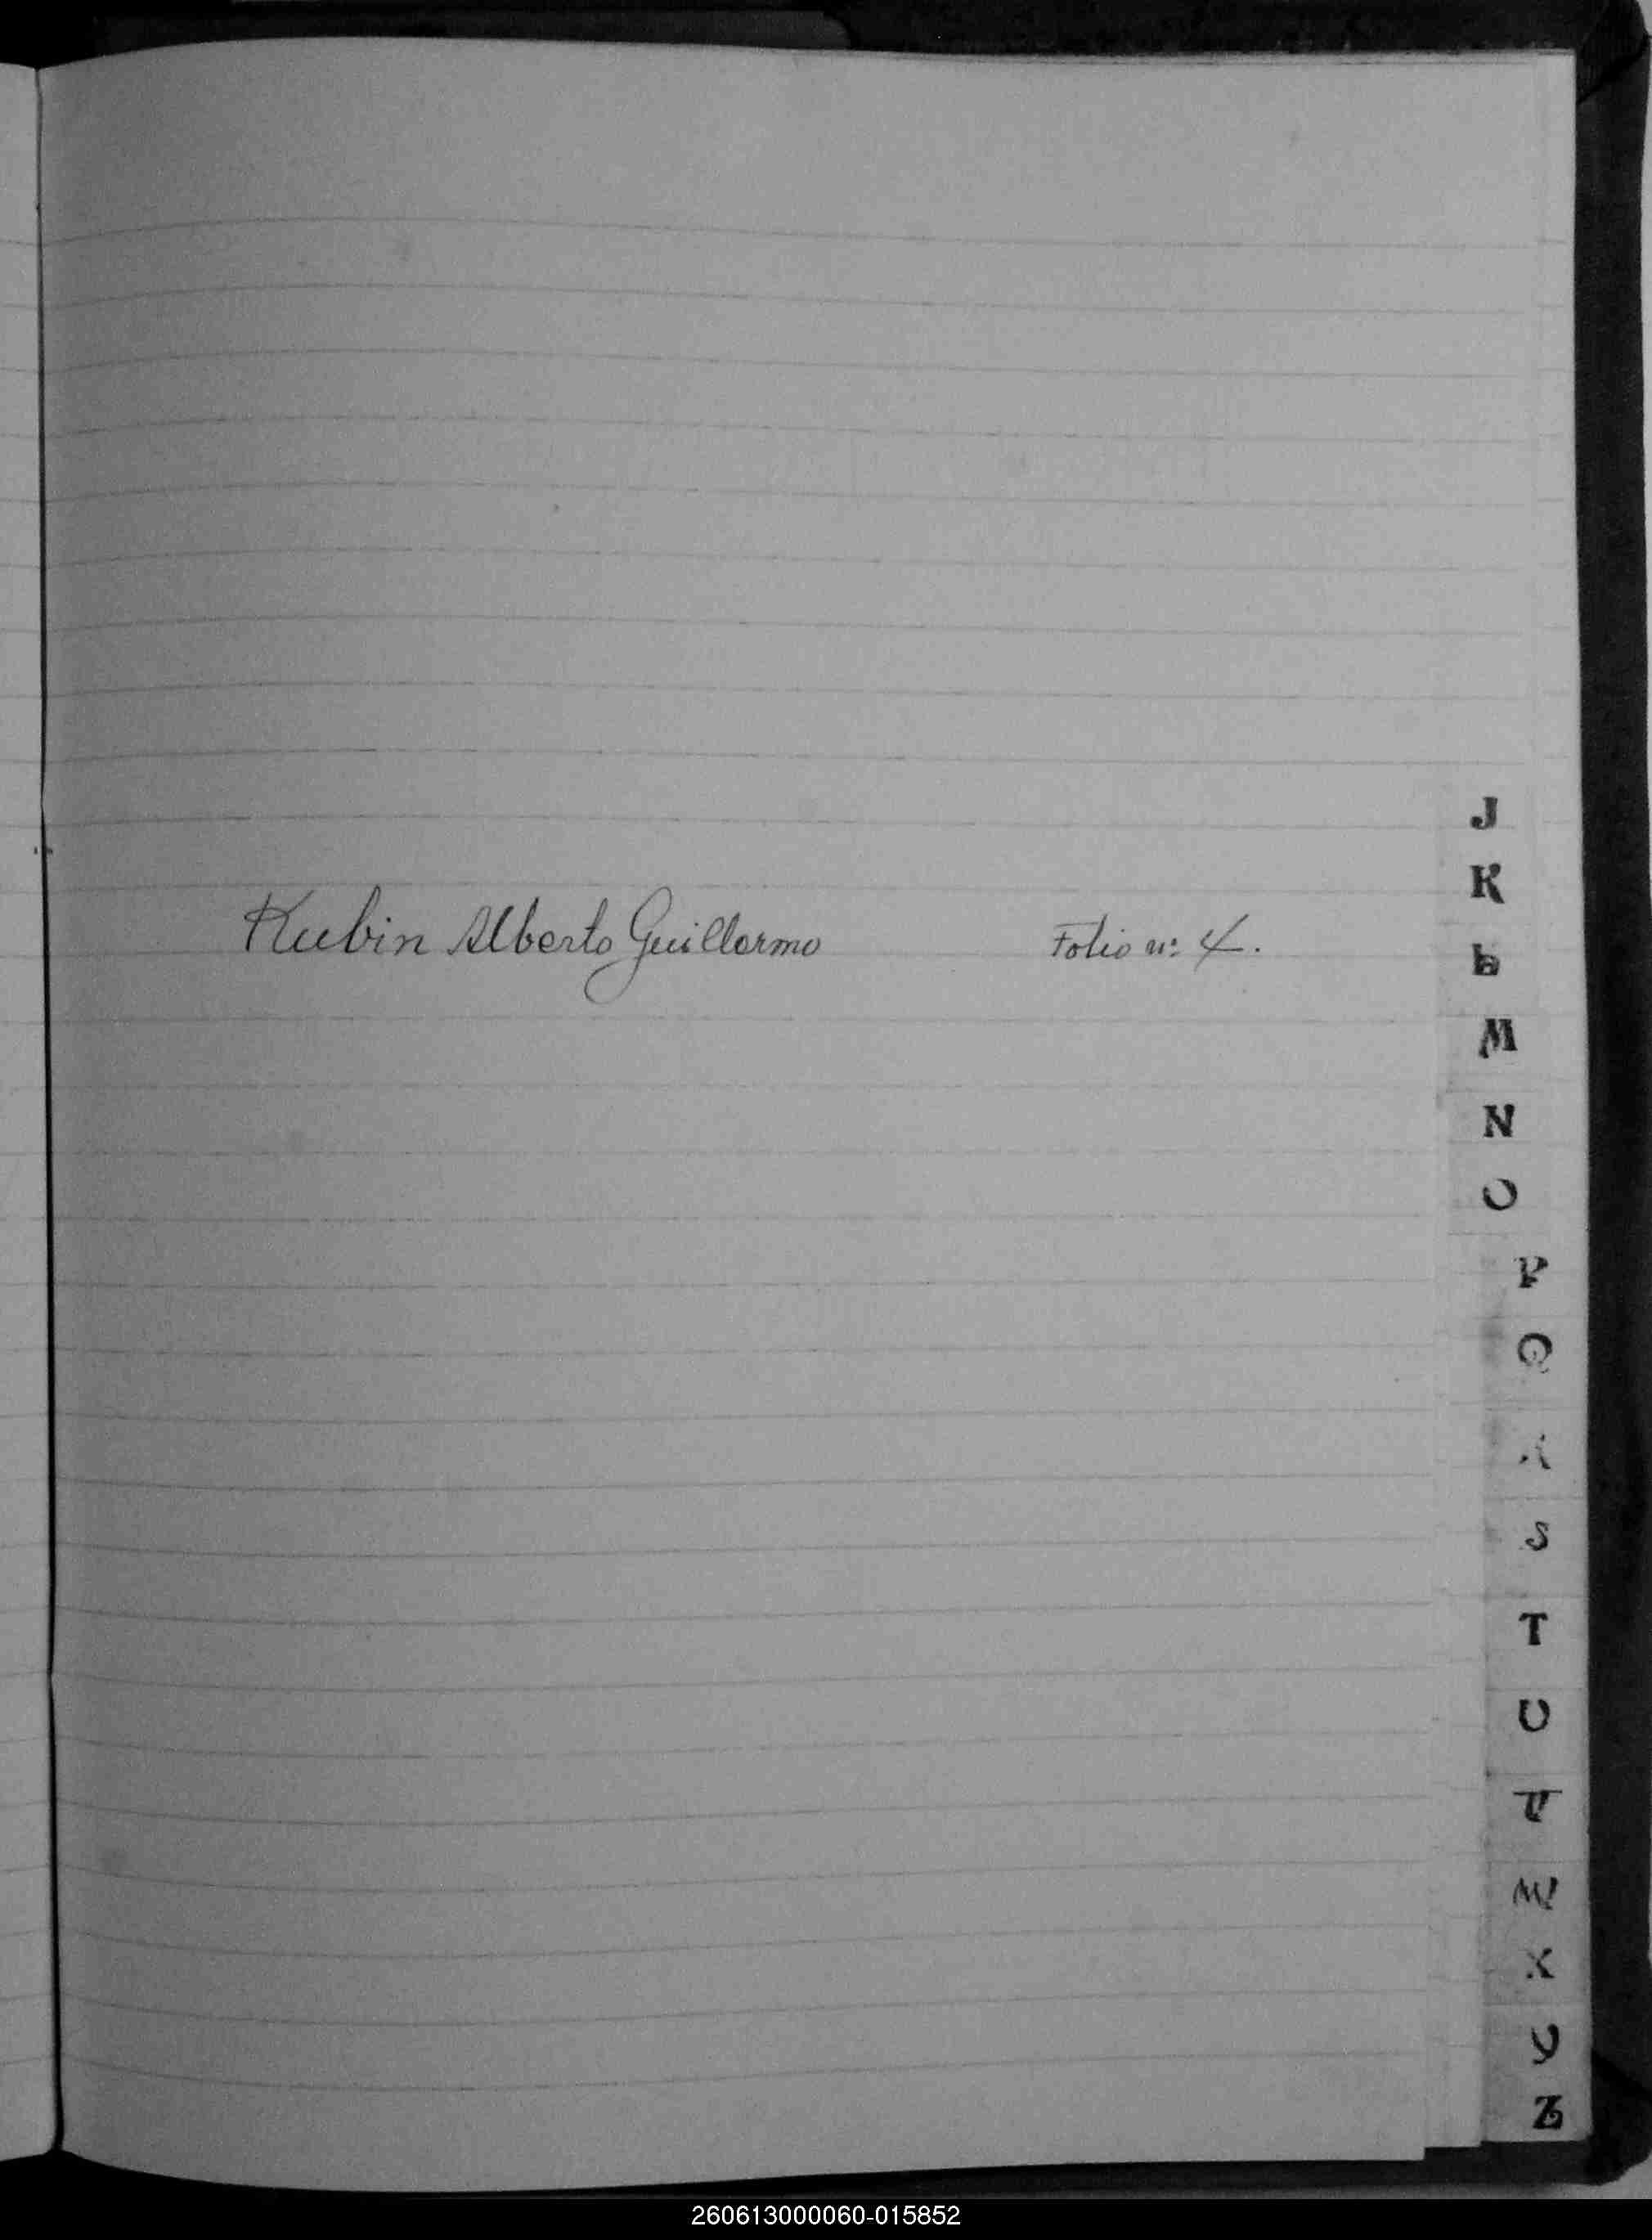 Kubin Alberto Guillermo Folio nº 4.
J
K
L
M
N
O
P
Q
S
T
U
V
W
X
Y
Z
260613000060-015852